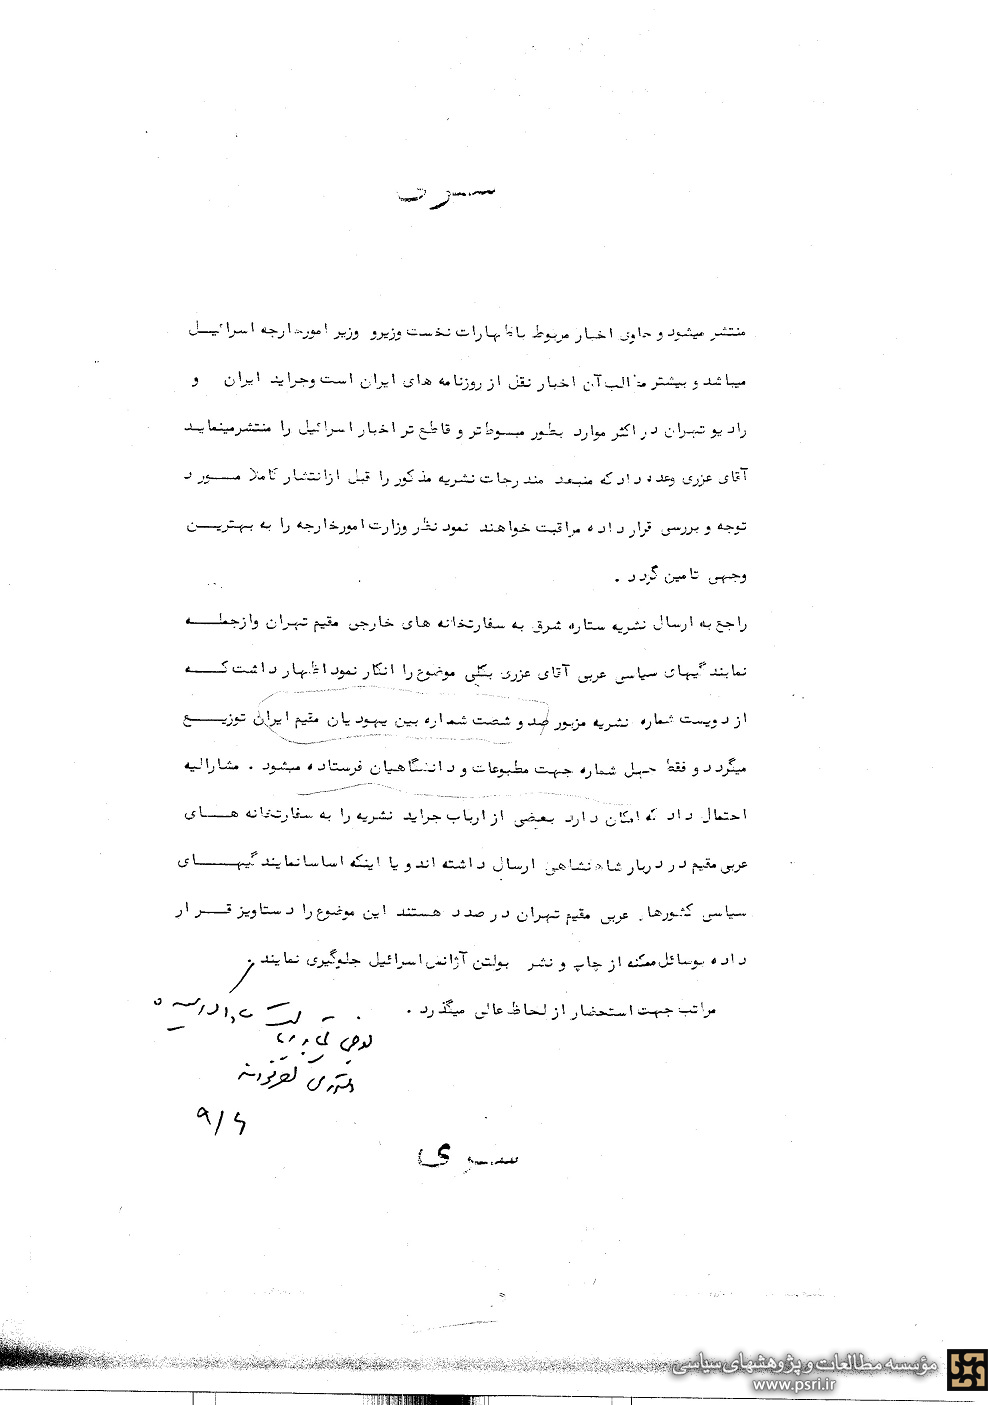 سری
منتشر میشود و حاوی اخبار مربوط باظهارات نخست وزیر و وزیر امورخارجه اسرائیل
میباشد و بیشتر مطالب آن اخبار نقل از روزنامه های ایران است وجراید ایران و
رادیو تهران در اکثر موارد بطور مبسوط تر و قاطع تر اخبار اسرائیل را منتشرمینماید
آقای عزری وعده داد که منبعد مندرجات نشریه مذکور را قبل ازانتشار کاملا مورد
توجه و بررسی قرار داده مراقبت خواهند نمود نظر وزارت امورخارجه را به بهترین
وجهی تامین گردد .
راجع به ارسال نشریه ستاره شرق به سفارتخانه های خارجی مقیم تهران وازجمله
نمایندگیهای سیاسی عربی آقای عزری بکلی موضوع را انکار نمود اظهار داشت که
از دویست شماره نشریه مزبور صد و شصت شماره بین یهودیان مقیم ایران توزیع
میگردد و فقط چهل شماره جهت مطبوعات و دانشگاهیان فرستاده میشود . مشارالیه
احتمال داد که امکان دارد بعضی از ارباب جراید نشریه را به سفارتخانه های
عربی مقیم در دربار شاهنشاهی ارسال داشته اند و یا اینکه اساسا نمایندگیهای
سیاسی کشورهای عربی مقیم تهران در صدد هستند این موضوع را دستاویز قرار
داده بوسائل ممکنه از چاپ و نشر بولتن آژانس اسرائیل جلوگیری نمایند .
مراتب جهت استحضار از لحاظ عالی میگذرد .
۹/۶
سری
مؤسسه مطالعات و پژوهشهای سیاسی
www.psri.ir